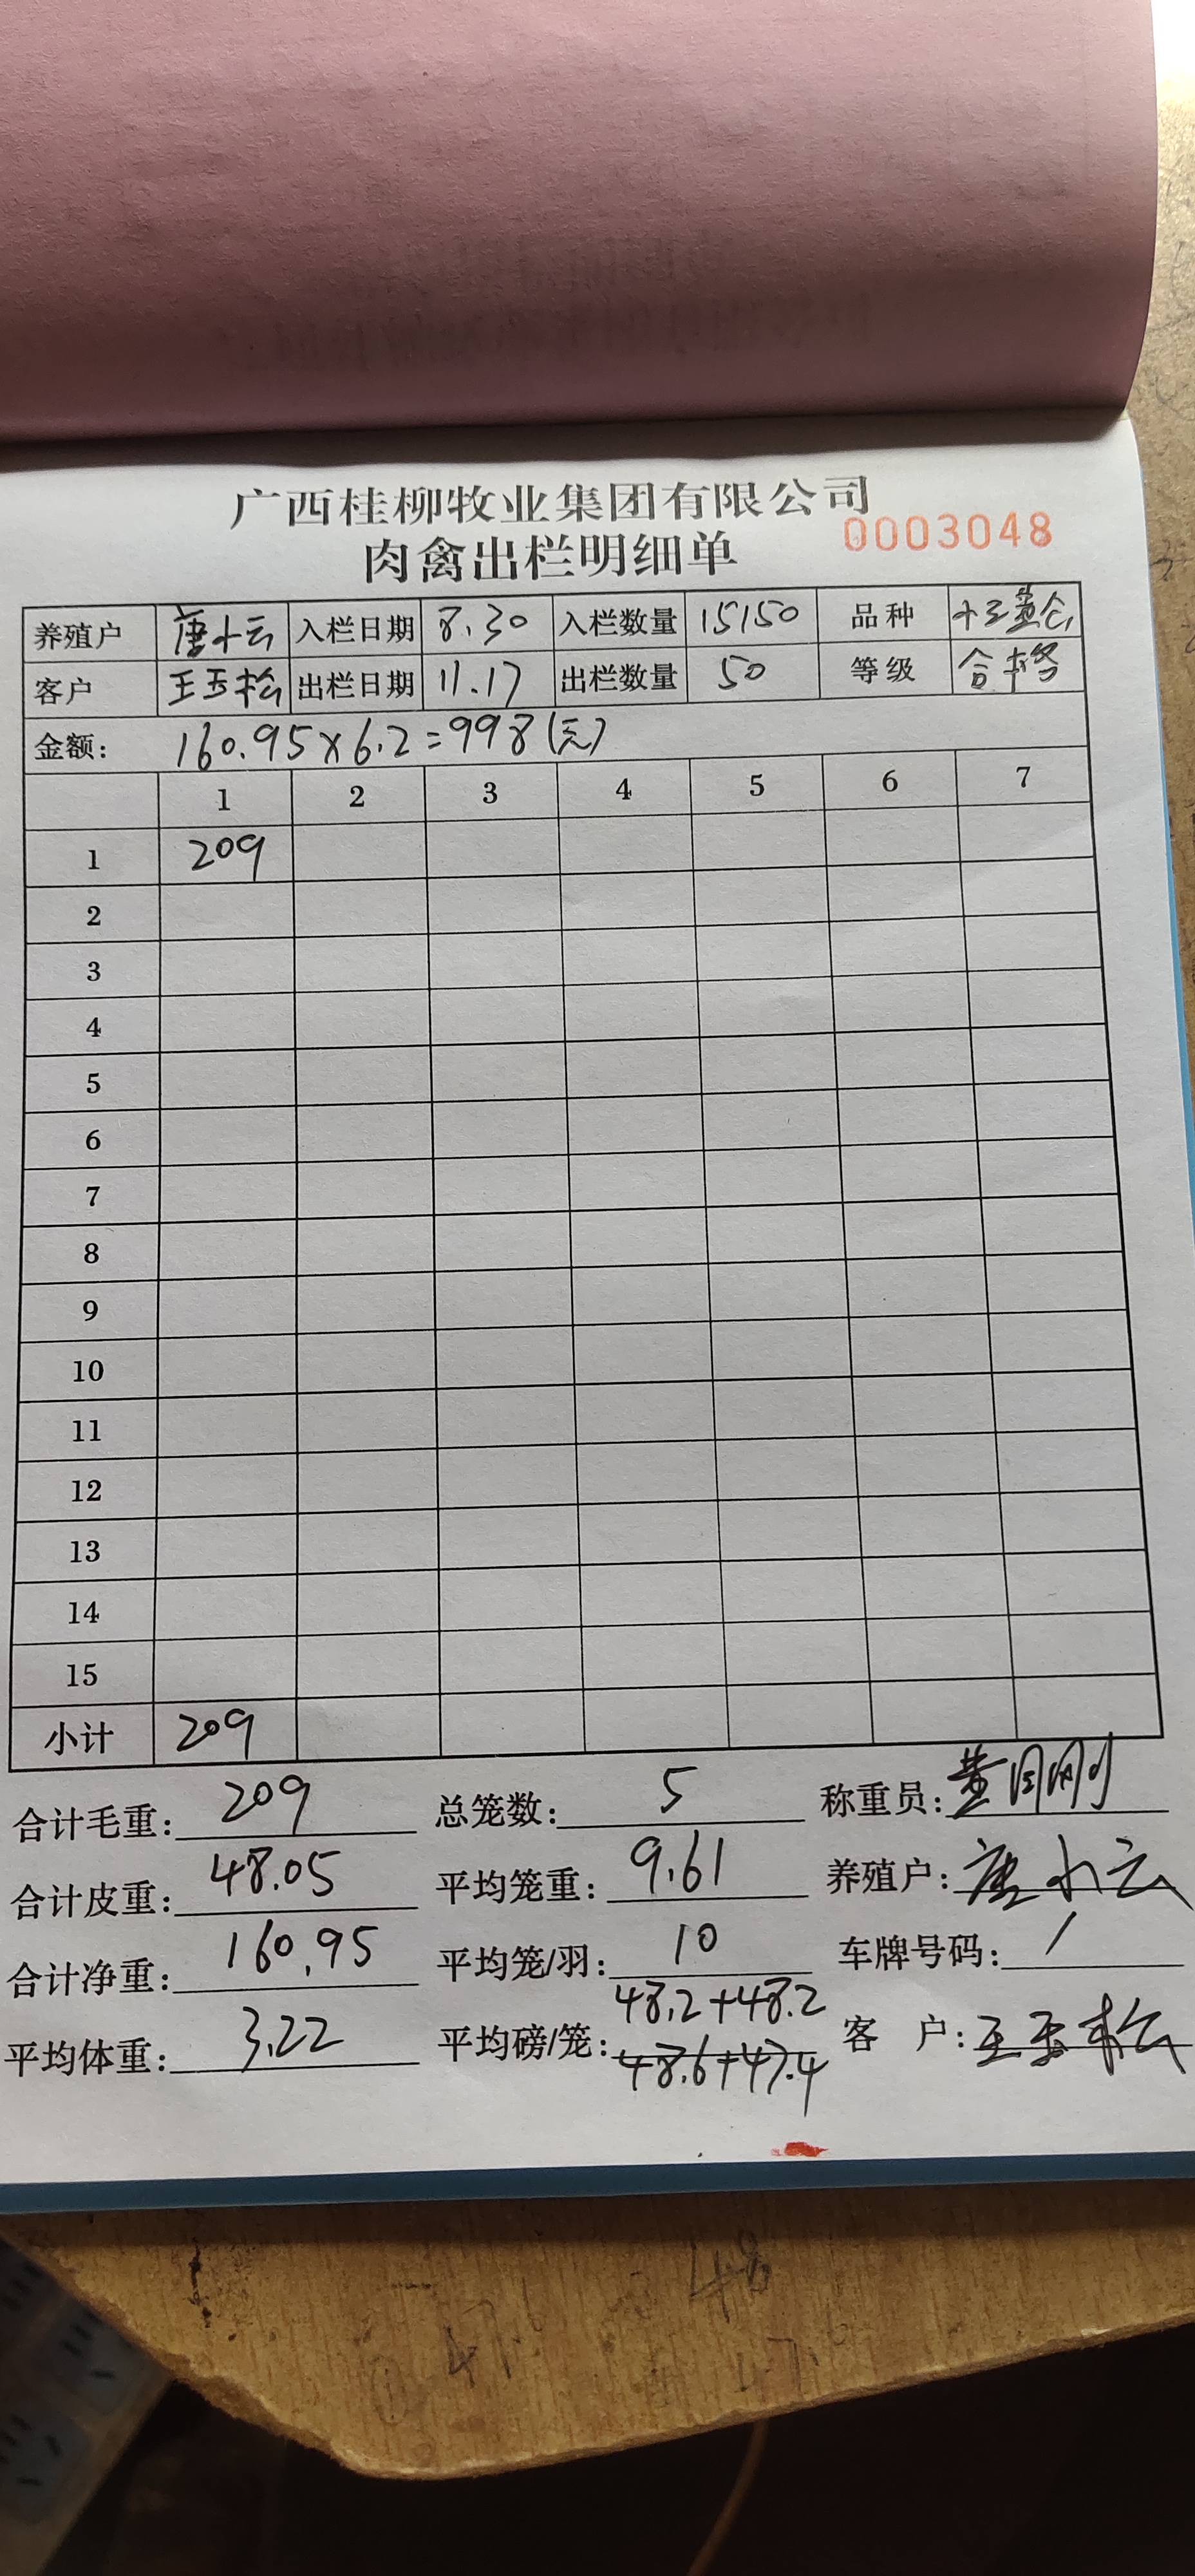 广西桂柳牧业集团有限公司
肉禽出栏明细单 0003048
养殖户 唐小云 入栏日期 8.30 入栏数量 15150 品种
客户 王玉松 出栏日期 11.17 出栏数量 50 等级 合格
金额: 160.95×6.2=998(元)
1 2 3 4 5 6 7
1 209
2
3
4
5
6
7
8
9
10
11
12
13
14
15
小计 209
合计毛重: 209 总笼数: 5 称重员:
合计皮重: 48.05 平均笼重: 9.61 养殖户: 唐小云
合计净重: 160.95 平均笼/羽: 10 车牌号码: /
平均体重: 3.22 平均磅/笼: 48.2+48.2 客 户: 王玉松
48.6+47.4